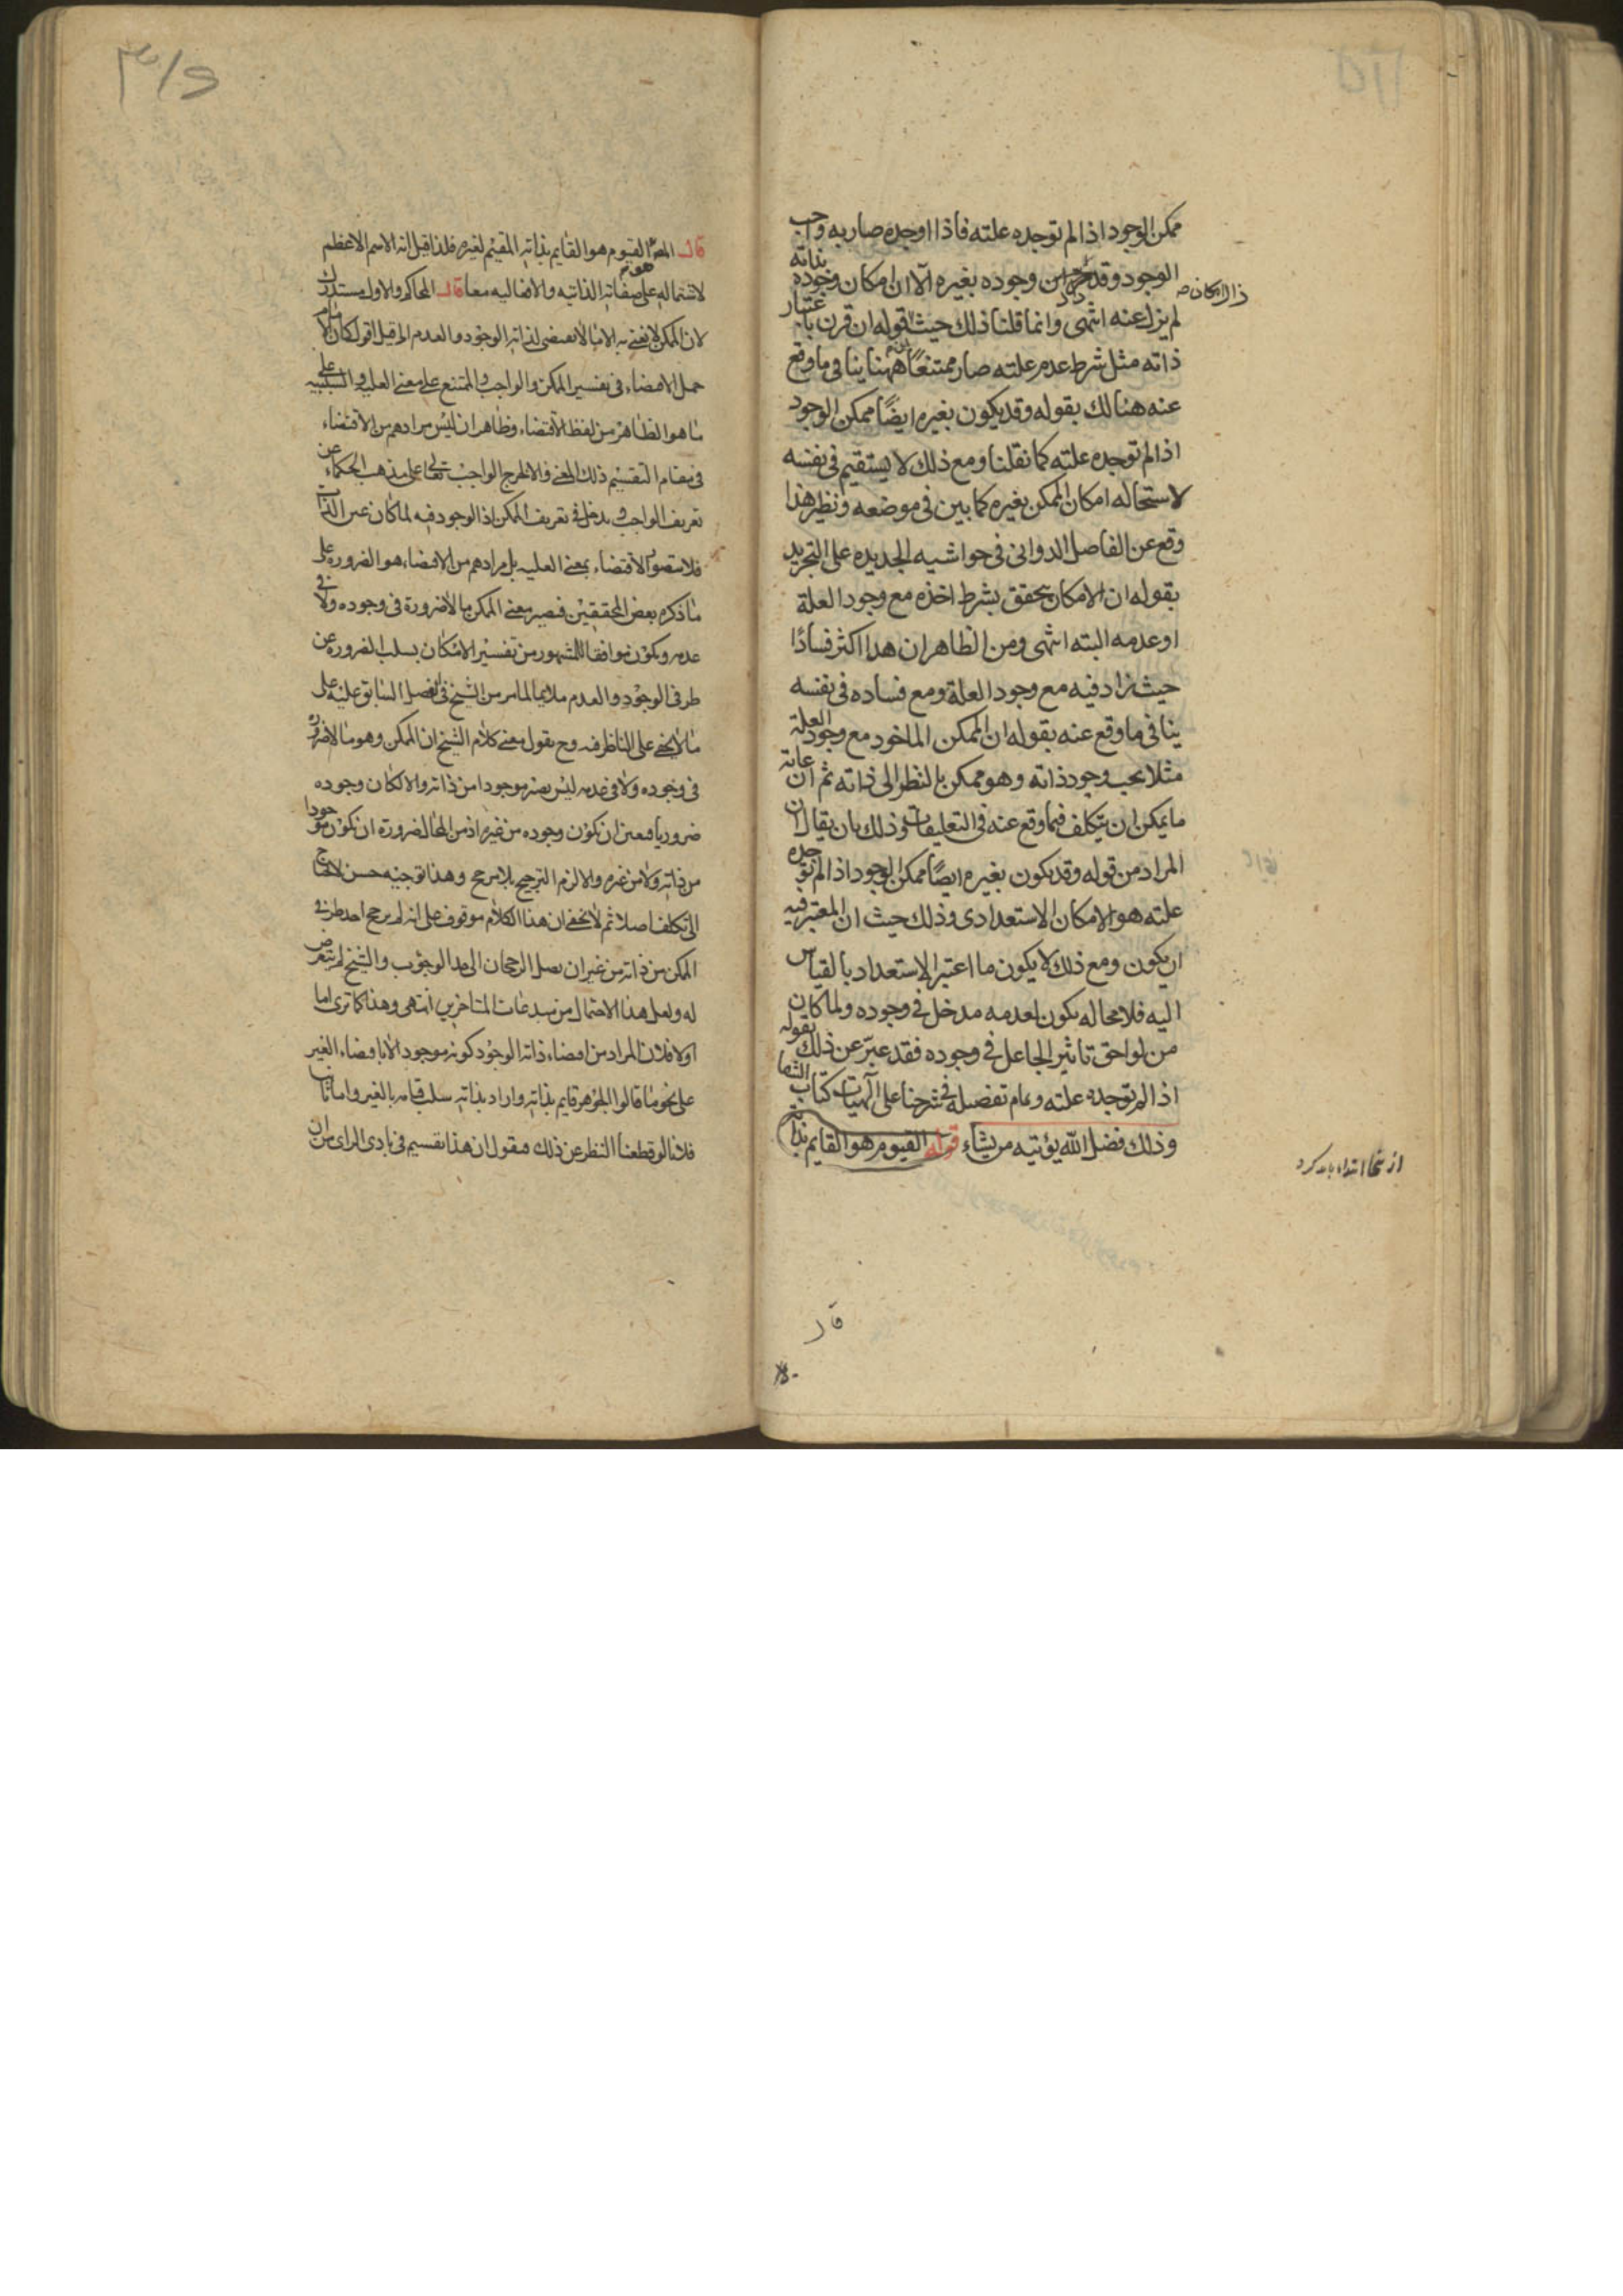 ممكن الوجود اذا لم توجده علته فاذا اوجده صار به واجب
الوجود وقد وجوده بغيره الا ان امكان وجوده بذاته
ذا الامكان صح
لم يزل عنه انتهى وانما قلنا ذلك حيث قوله ان قرن باعتبار
ذاته مثل شرط عدم علته صار ممتنعًا ههنا ينافى ما وقع
عنه هنالك بقوله وقد يكون بغيره ايضًا ممكن الوجود
اذا لم توجده علته كما نقلنا ومع ذلك لا يستقيم فى نفسه
لاستحاله امكان الممكن بغيره كما بين فى موضعه ونظير هذا
وقع عن الفاصل الدوانى فى حواشيه الجديده على التجريد
بقوله ان الامكان يتحقق بشرط اخذه مع وجود العلة
او عدمه البته انتهى ومن الظاهر ان هذا اكثر فسادًا
حيث زاد فيه مع وجود العلة ومع فساده فى نفسه
ينافى ما وقع عنه بقوله ان الممكن الماخود مع وجود العلة
مثلا يجب وجود ذاته وهو ممكن بالنظر الى ذاته ثم ان غاية
ما يمكن ان يتكلف فيما وقع عنه فى التعليقات وذلك بان يقال ان
المراد من قوله وقد يكون بغيره ايضًا ممكن الوجود اذا لم توجده
علته هو الامكان الاستعدادى وذلك حيث ان المعتبر فيه
ان يكون ومع ذلك لا يكون ما اعتبر الاستعداد بالقياس
اليه فلا محاله يكون لعدمه مدخل فى وجوده ولما كان
من لواحق تاثير الجاعل فى وجوده فقد عبّر عن ذلك بقوله
اذا لم توجده علته وتمام تفصيله فى شرحنا على الهيات كتاب الشفا
وذلك فضل الله يؤتيه من يشاء قوله القيوم هو القايم بذاته
از ينجا ابتداء بايد كرد
قال
قال المص القيوم هو القايم بذاته المقيم لغيره فلذا قيل انه الاسم الاعظم
لاشتماله على صفاته الذاتيه والافعاليه معا قال المحاكم والاول مستدرك
لان الممكن لا يعنى به الا ما لا يقتضى لذاته الوجود والعدم
حمل الاقتضاء فى تفسير الممكن والواجب والممتنع على معنى العليه والسببيه على
ما هو الظاهر من لفظ الاقتضاء وظاهر ان ليس مرادهم من الاقتضاء
فى مقام التقسيم ذلك المعنى والا لخرج الواجب تعالى على مذهب الحكماء عن
تعريف الواجب ويدخل فى تعريف الممكن اذ الوجود فيه لما كان عين الذات
فلا يتصور الاقتضاء بمعنى العليه بل مرادهم من الاقتضاء هو الضرورة على
ما ذكره بعض المحققين فيصير معنى الممكن ما لا ضرورة فى وجوده ولا فى
عدمه ويكون موافقا للمشهور من تفسير الامكان بسلب الضرورة عن
طرفى الوجود والعدم ملايما لما مر من الشيخ فى الفصل السابق عليه على
ما لا يخفى على الناظر فيه وح يقول معنى كلام الشيخ ان الممكن وهو ما لا ضرورة
فى وجوده ولا فى عدمه ليس يصير موجودا من ذاته والا لكان وجوده
ضروريا فتعين ان يكون وجوده من غيره اذ من المحال ضرورة ان يكون موجودا
من ذاته ولا من غيره والا لزم الترجيح بلا مرجح وهذا توجيه حسن لا يحتاج
الى تكلف اصلا ثم لا يخفى ان هذا الكلام موقوف على انه لم يرجح احد طرفى
الممكن من ذاته من غير ان يصل الرجحان الى حد الوجوب والشيخ لم يتعرض
له ولعل هذا الاحتمال من مبدعات المتاخرين انتهى وهذا كما ترى اما
اولا فلان المراد من اقتضاء ذاته الوجود كونه موجودا لا باقتضاء الغير
على نحو ما قالوا الجوهر قايم بذاته واراد بذاته سلب قيامه بالغير واما ثانيا
فلانا لو قطعنا النظر عن ذلك فنقول ان هذا تقسيم فى بادى الراى من ان